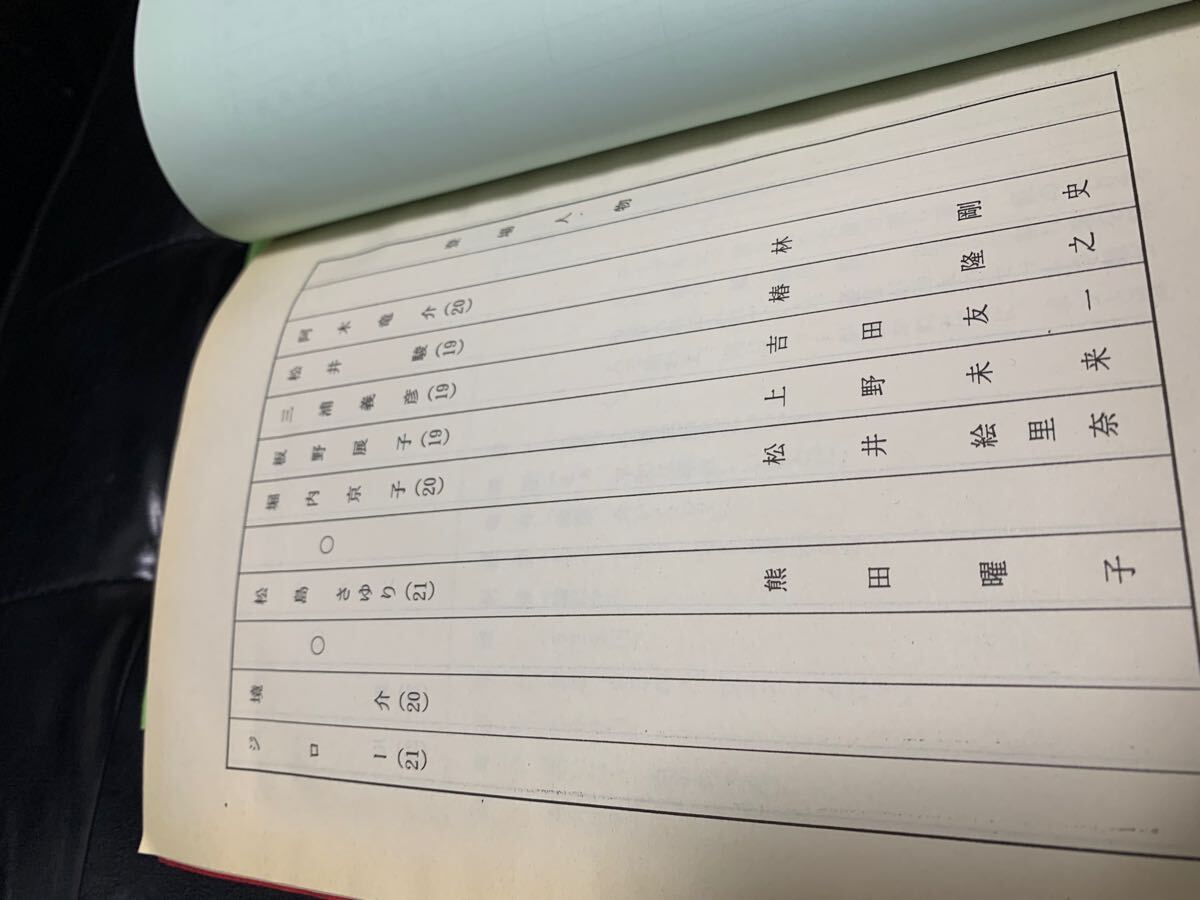 登場人物
阿木竜介(20) 林剛史
松井駿(19) 椿隆之
三浦義彦(19) 吉田友一
板野展子(19) 上野未来
堀内京子(20) 松井絵里奈
○
松島さゆり(21) 熊田曜子
○
境介(20)
ジロー(21)